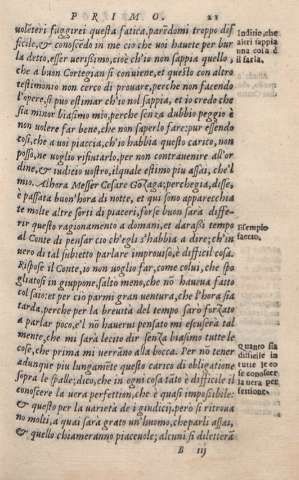 PRIMO. 22
uoleteri fuggirei questa fatica, parēdomi troppo dif
ficile, & conoscēdo in me cio che uoi hauete per bur
la detto, esser uerissimo, cioè ch'io non sappia quello,
che a buon Cortegian si conuiene, et questo con altro
testimonio non cerco di prouare, perche non facendo
l'opere, si puo estimar ch'io nol sappia, et io credo che
sia minor biasimo mio, perche senza dubbio peggio è
non uolere far bene, che non saperlo fare: pur essendo
cosi, che a uoi piaccia, ch'io habbia questo carico, non
posso, ne uoglio rifiutarlo, per non contrauenire all'or
dine, & iudicio uostro, ilquale estimo piu assai, che'l
mio. Alhora Messer Cesare Gōzaga; perche gia, disse,
è passata buon'hora di notte, et qui sono apparecchia
te molte altre sorti di piaceri, forse buon sarà diffe-
rir questo ragionamento a domani, et darassi tempo
al Conte di pensar cio ch'egli s'habbia a dire; ch'in
uero di tal subietto parlare improuiso, è difficil cosa.
Rispose il Conte, io non uoglio far, come colui, che spo
gliatosi in giuppone, saltò meno, che nō hauea fatto
col saio: et per cio parmi gran uentura, che l'hora sia
tarda, perche per la breuità del tempo sarò forzato
a parlar poco, e'l nō hauerui pensato mi escuserà tal
mente, che mi sarà lecito dir senza biasimo tutte le
cose, che prima mi uerrāno alla bocca. Per nō tener
adunque piu lungamēte questo carico di obligatione
sopra le spalle; dico, che in ogni cosa tāto è difficile il
conoscere la uera perfettion, che è quasi impossibile:
& questo per la uarietà de i giudicij. però si ritroua
no molti, a quai sarà grato un'huomo, che parli assai,
& quello chiameranno piaceuole; alcuni si diletterà
B iij
Inditio, che
altri sappia
una cosa è
il farla.
Essempio
faceto.
Quanto sia
difficile in
tutte le co
se conoscer
la uera per
fettione.